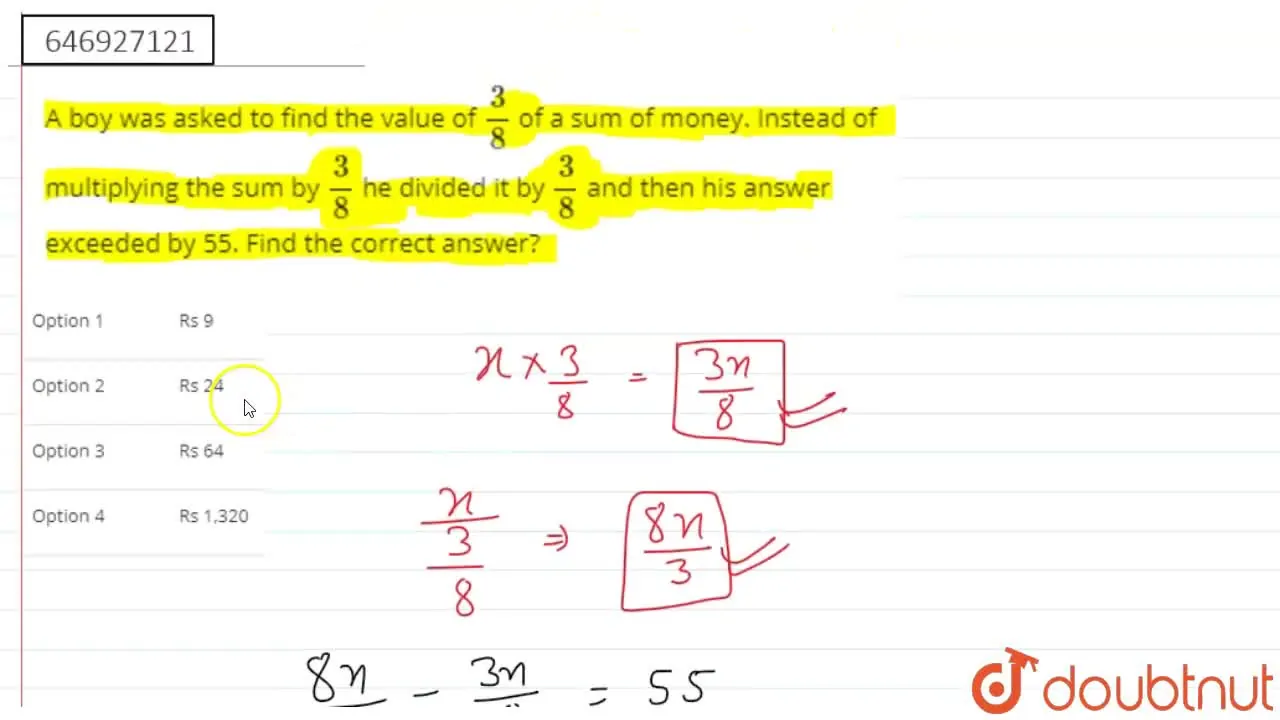 646927121
A boy was asked to find the value of 3/8 of a sum of money. Instead of
multiplying the sum by 3/8 he divided it by 3/8 and then his answer
exceeded by 55. Find the correct answer?
Option 1 Rs 9
Option 2 Rs 24
Option 3 Rs 64
Option 4 Rs 1,320
x × 3/8 = 3x/8
x/(3/8) ⇒ 8x/3
8x/ - 3x/ = 55
doubtnut